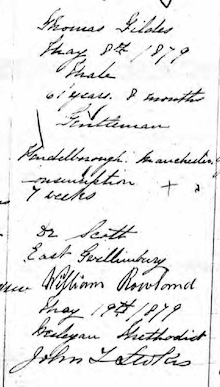 Thomas Gildes
May 8th 1879
Male
61 years. 8 months
Gentleman
Manchester
consumption +
7 weeks
Dr Scott
East Gwillimbury
William Rowland
May 19th/1879
Wesleyan Methodist
John T Stokes